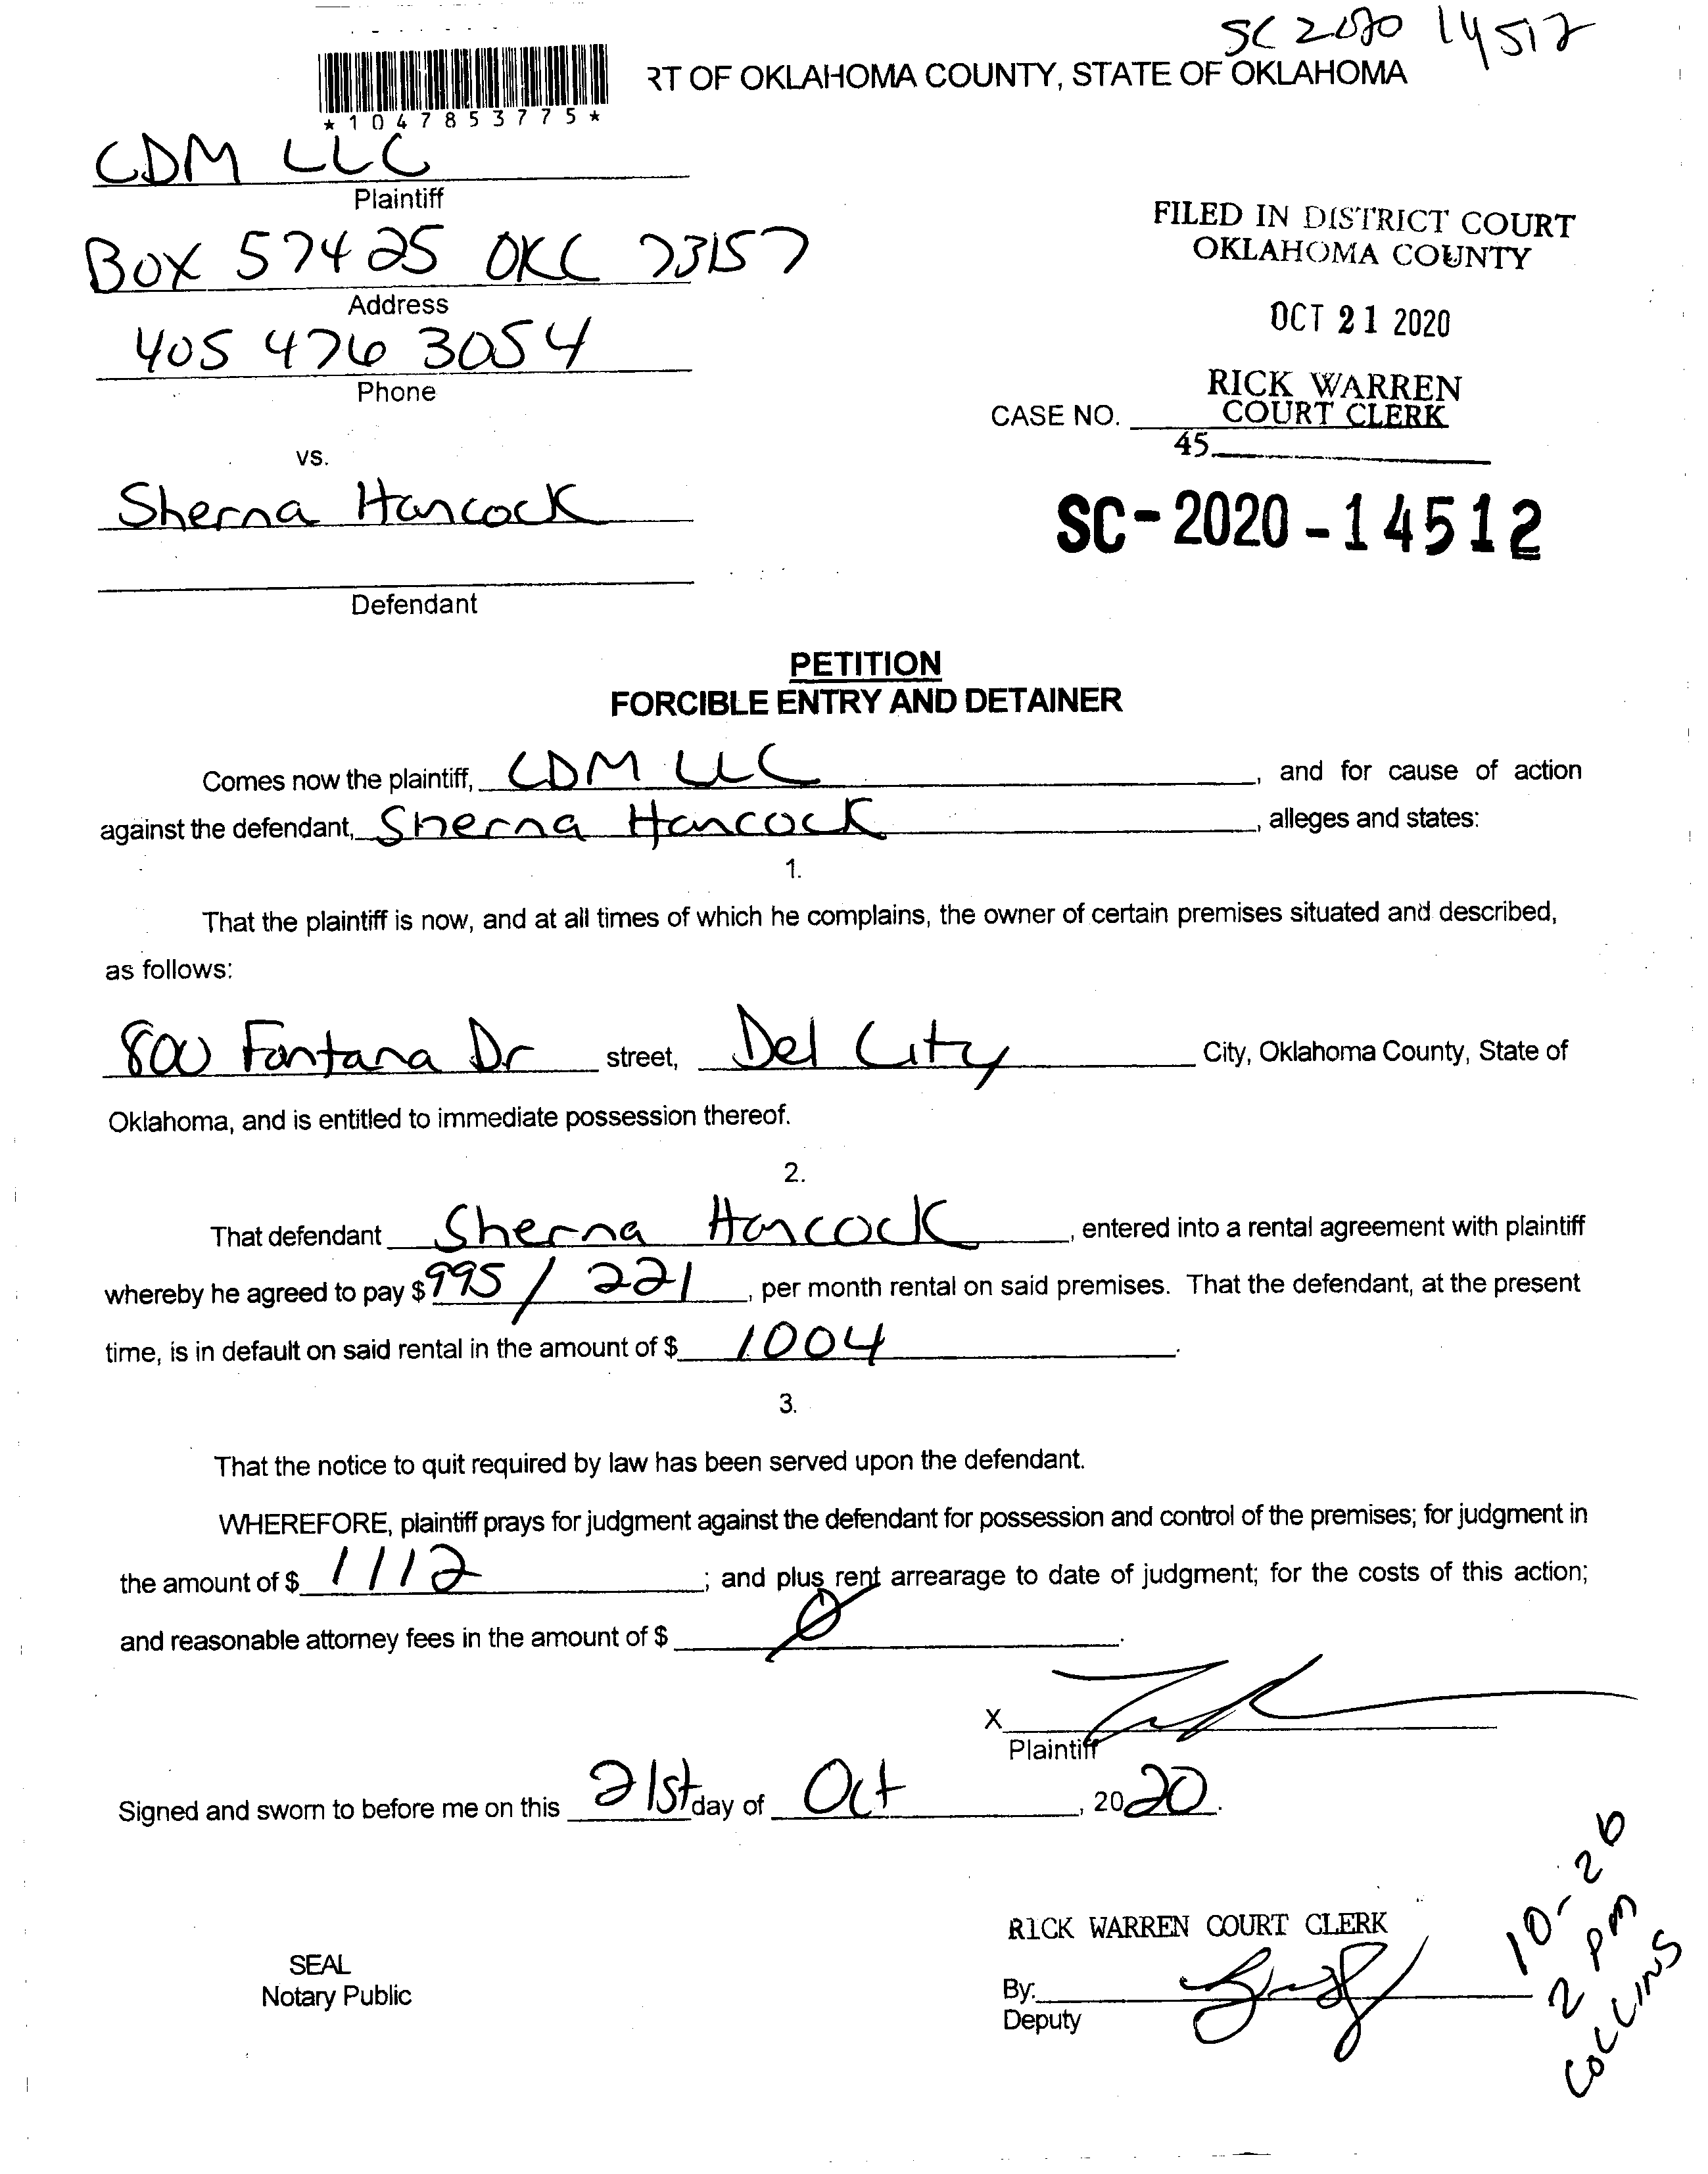 SC 2020 14512
RT OF OKLAHOMA COUNTY, STATE OF OKLAHOMA
*1047853775*
CDM LLC
Plaintiff
FILED IN DISTRICT COURT
OKLAHOMA COUNTY
Box 57425 OKC 73157
Address
OCT 21 2020
405 476 3054
Phone
RICK WARREN
CASE NO. COURT CLERK
45
vs.
Sherna Hancock
SC-2020-14512
Defendant
PETITION
FORCIBLE ENTRY AND DETAINER
Comes now the plaintiff, CDM LLC, and for cause of action
against the defendant, Sherna Hancock, alleges and states:
1.
That the plaintiff is now, and at all times of which he complains, the owner of certain premises situated and described,
as follows:
800 Fontana Dr street, Del City City, Oklahoma County, State of
Oklahoma, and is entitled to immediate possession thereof.
2.
That defendant Sherna Hancock, entered into a rental agreement with plaintiff
whereby he agreed to pay $995/221, per month rental on said premises. That the defendant, at the present
time, is in default on said rental in the amount of $ 1004.
3.
That the notice to quit required by law has been served upon the defendant.
WHEREFORE, plaintiff prays for judgment against the defendant for possession and control of the premises; for judgment in
the amount of $ 1112; and plus rent arrearage to date of judgment; for the costs of this action;
and reasonable attorney fees in the amount of $ Ø.
X
Plaintiff
Signed and sworn to before me on this 21st day of Oct, 2020.
RICK WARREN COURT CLERK
SEAL
Notary Public
By:
Deputy
10-26
2 PM
COLLINS